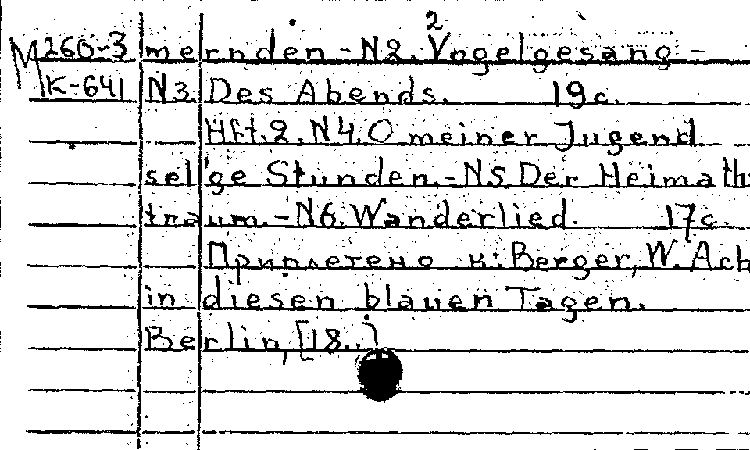 2
М 260-3 mernden.-N2. Vogelgesang-
К-641 N3. Des Abends. 19 c.
Hft.2. N4. O meiner Jugend
sel'ge Stunden.-N5. Der Heimath
traum.-N6. Wanderlied. 17 c.
Приплетено к: Berger, W. Ach
in diesen blauen Tagen.
Berlin, [18..]